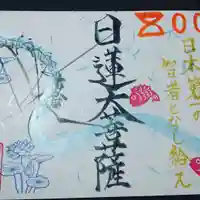 800
日本第一の
智者となし給え
日蓮大菩薩